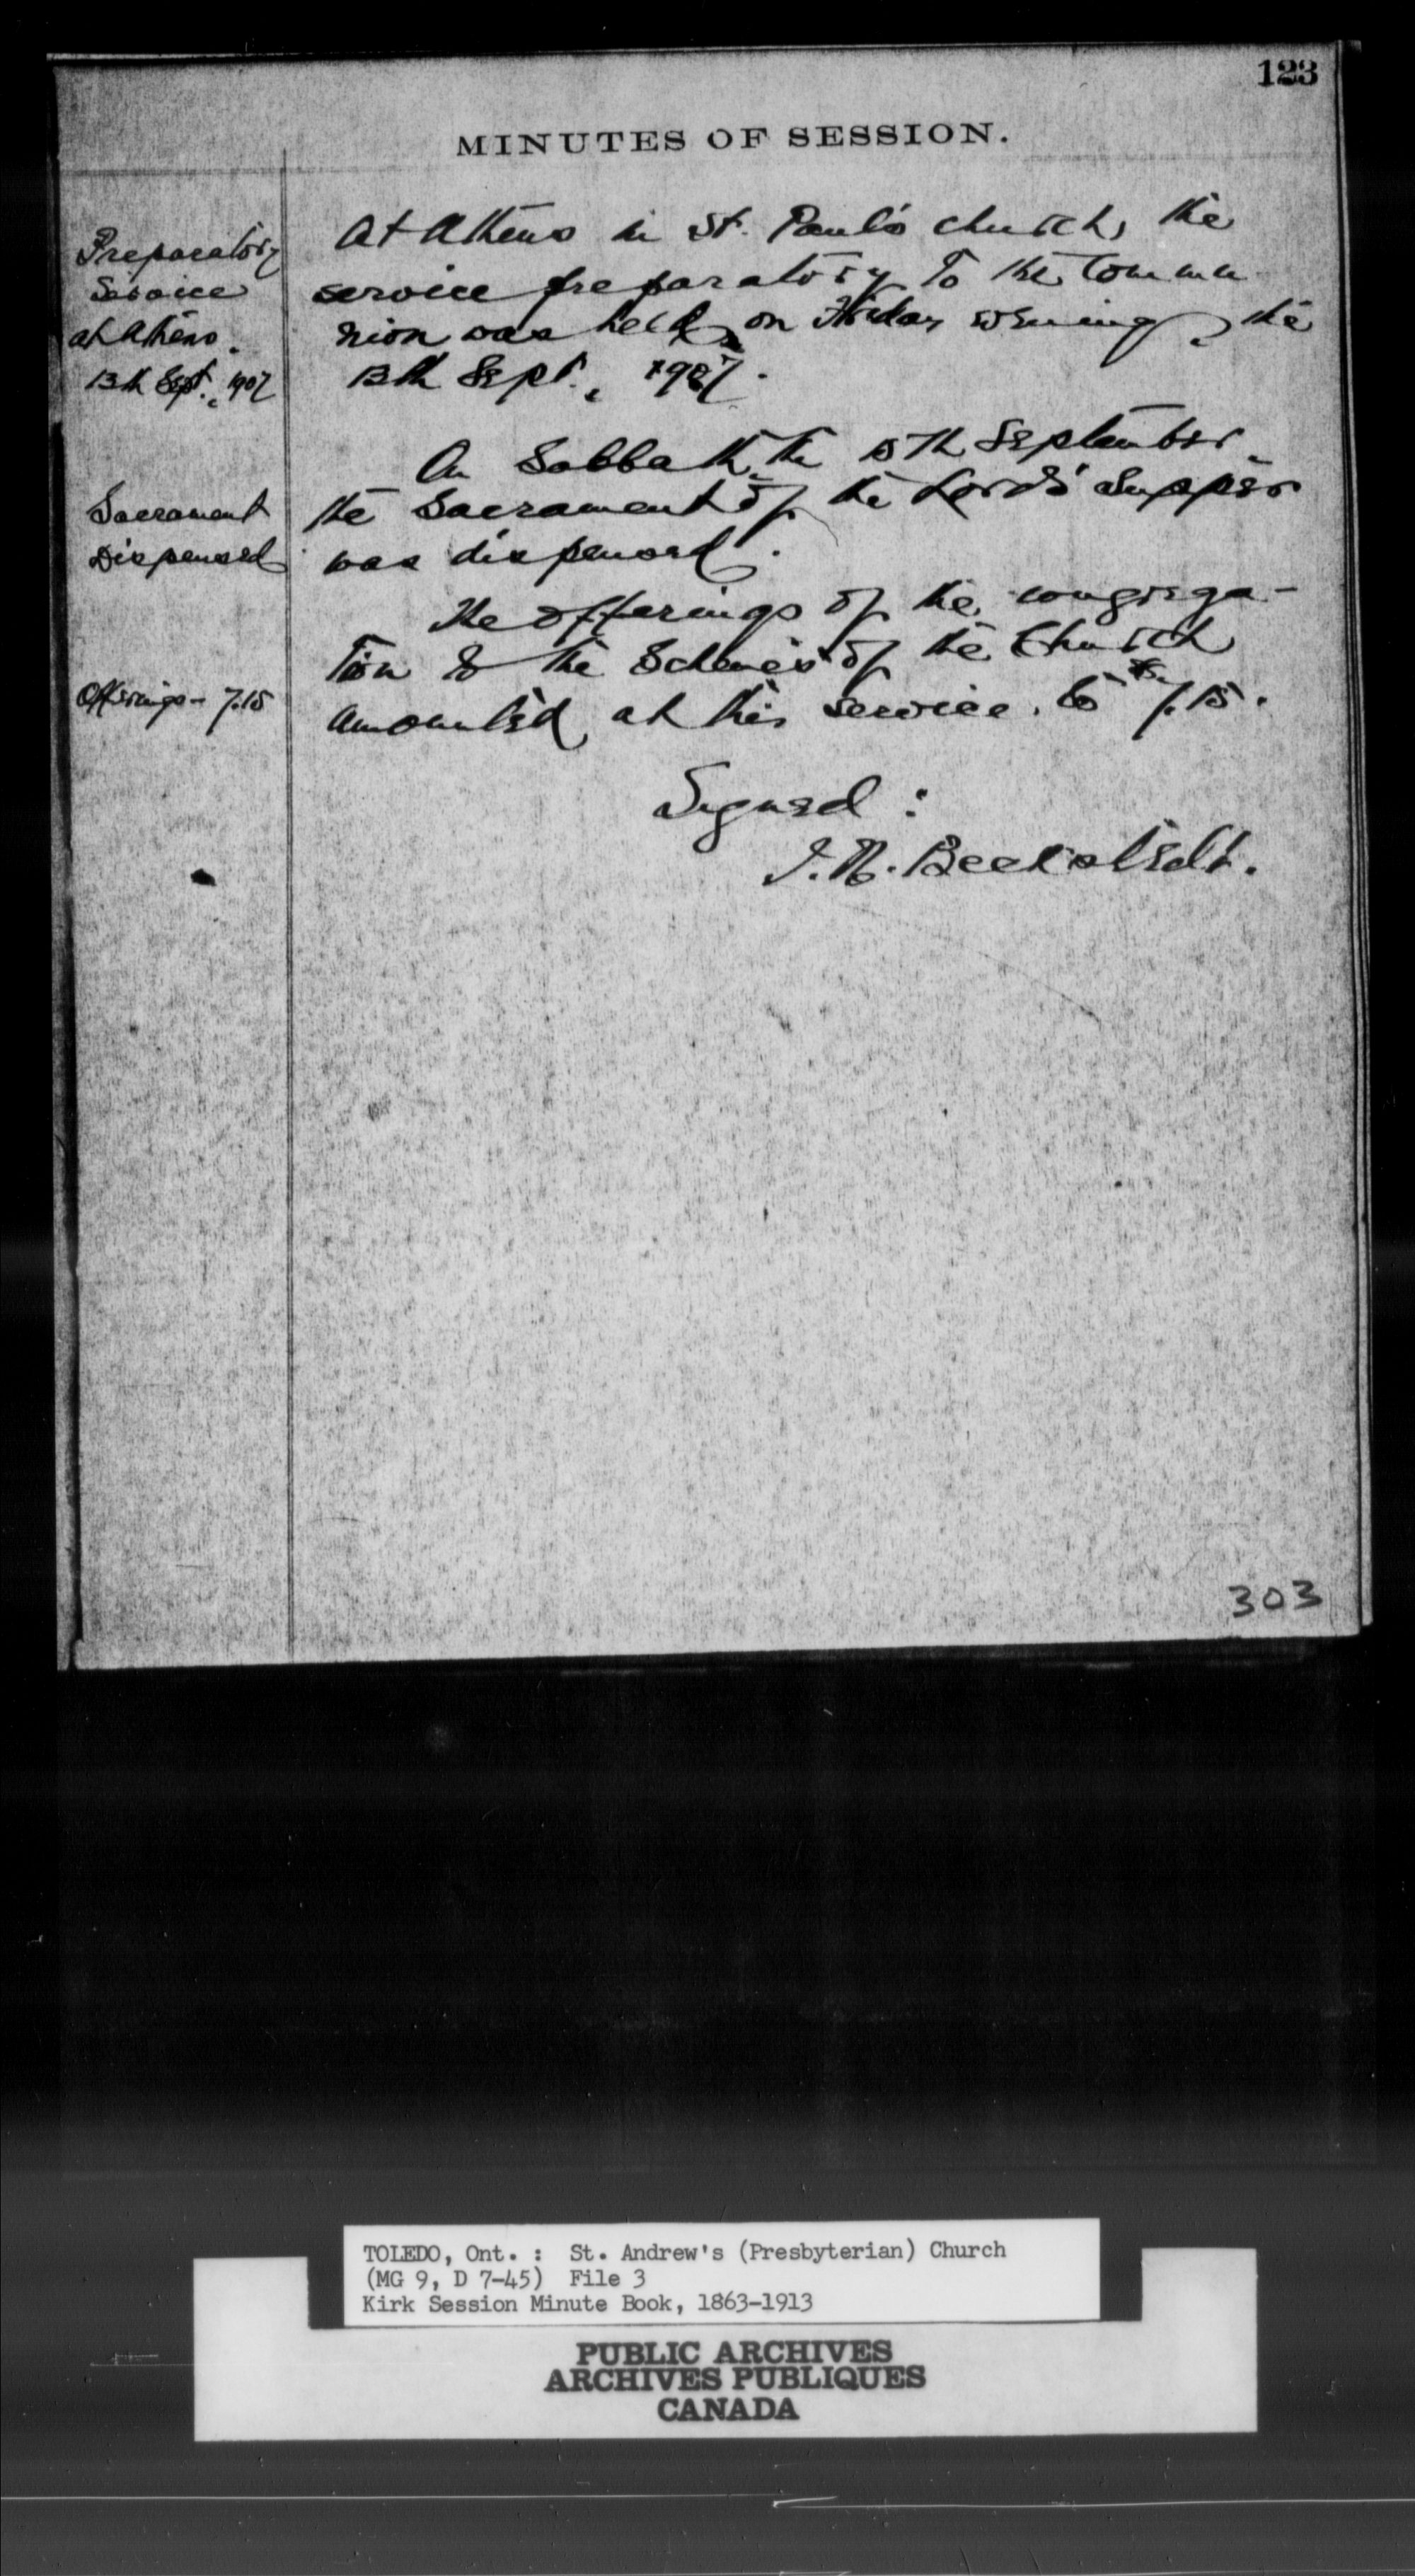 123
MINUTES OF SESSION.
Preparatory
Service
at Athens.
13th Sept., 1907
At Athens in St. Paul's church, the
service preparatory to the Commu
nion was held on Friday evening, the
13th Sept., 1907.
On Sabbath, the 15th September,
Sacrament
Dispensed
the Sacrament of the Lord's Supper
was dispensed.
The offerings of the congrega-
tion to the Schemes of the Church
Offerings - 7.15
amounted at this service to $7.15.
Signed :
I. N. Beckstedt.
303
TOLEDO, Ont. : St. Andrew's (Presbyterian) Church
(MG 9, D 7-45) File 3
Kirk Session Minute Book, 1863-1913
PUBLIC ARCHIVES
ARCHIVES PUBLIQUES
CANADA